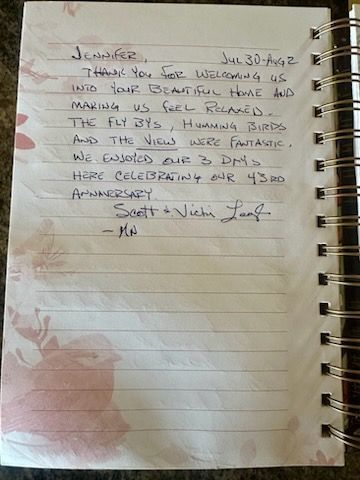 JENNIFER, JUL 30-AUG 2
THANK YOU FOR WELCOMING US
INTO YOUR BEAUTIFUL HOME AND
MAKING US FEEL RELAXED.
THE FLY BYS, HUMMING BIRDS
AND THE VIEW WERE FANTASTIC.
WE ENJOYED OUR 3 DAYS
HERE CELEBRATING OUR 43RD
ANNIVERSARY
Scott & Vicki
- MN